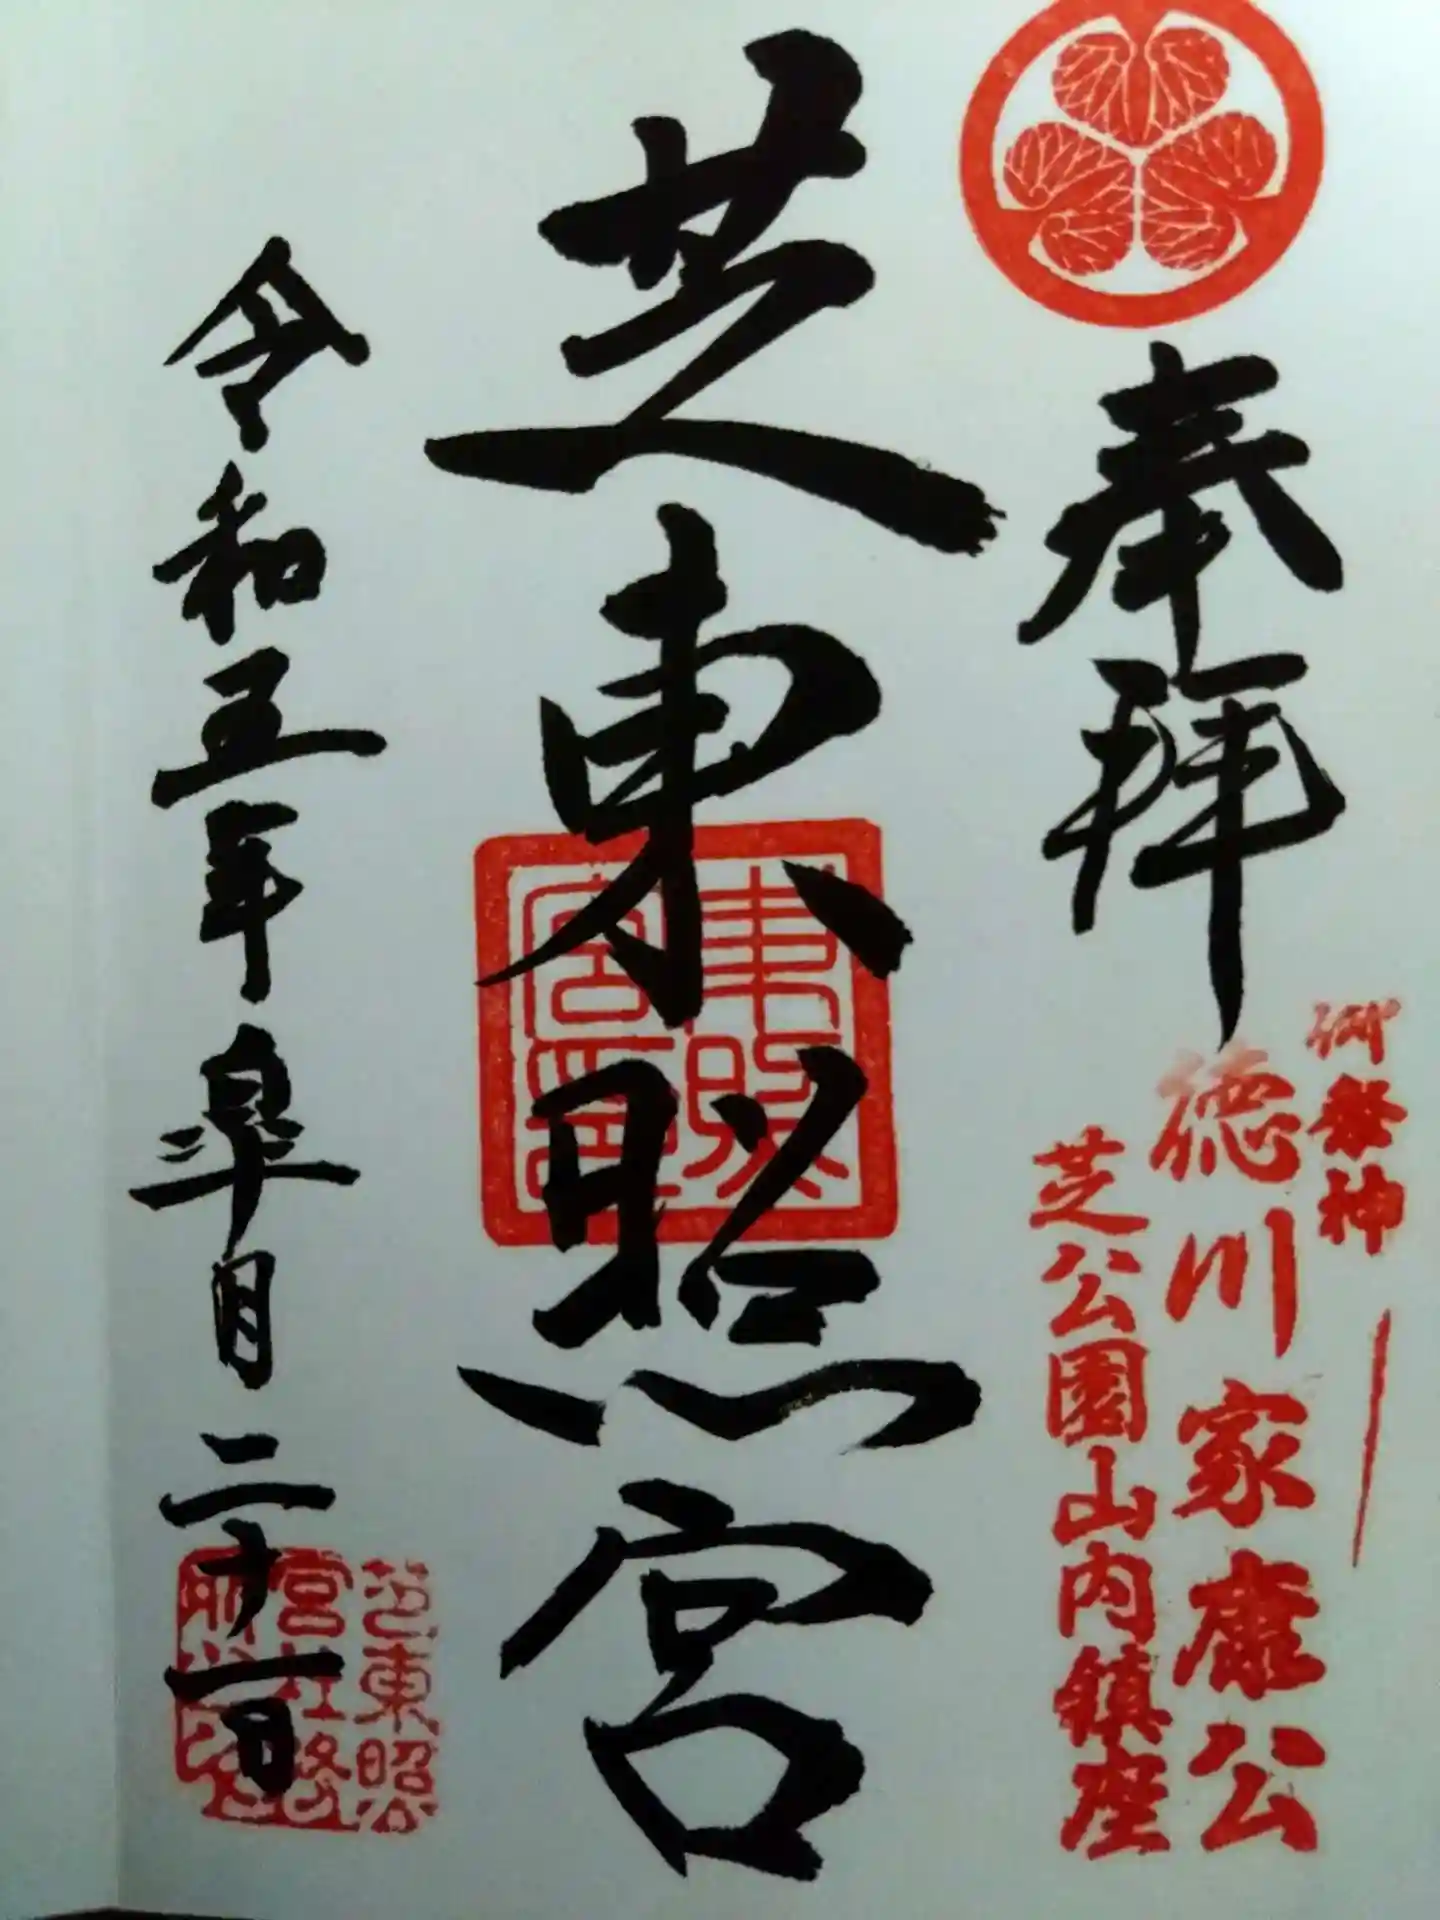 奉拝
御祭神
徳川家康公
芝公園山内鎮座
芝東照宮
東照
宮印
令和五年皐月二十一日
芝東照
宮社務
所